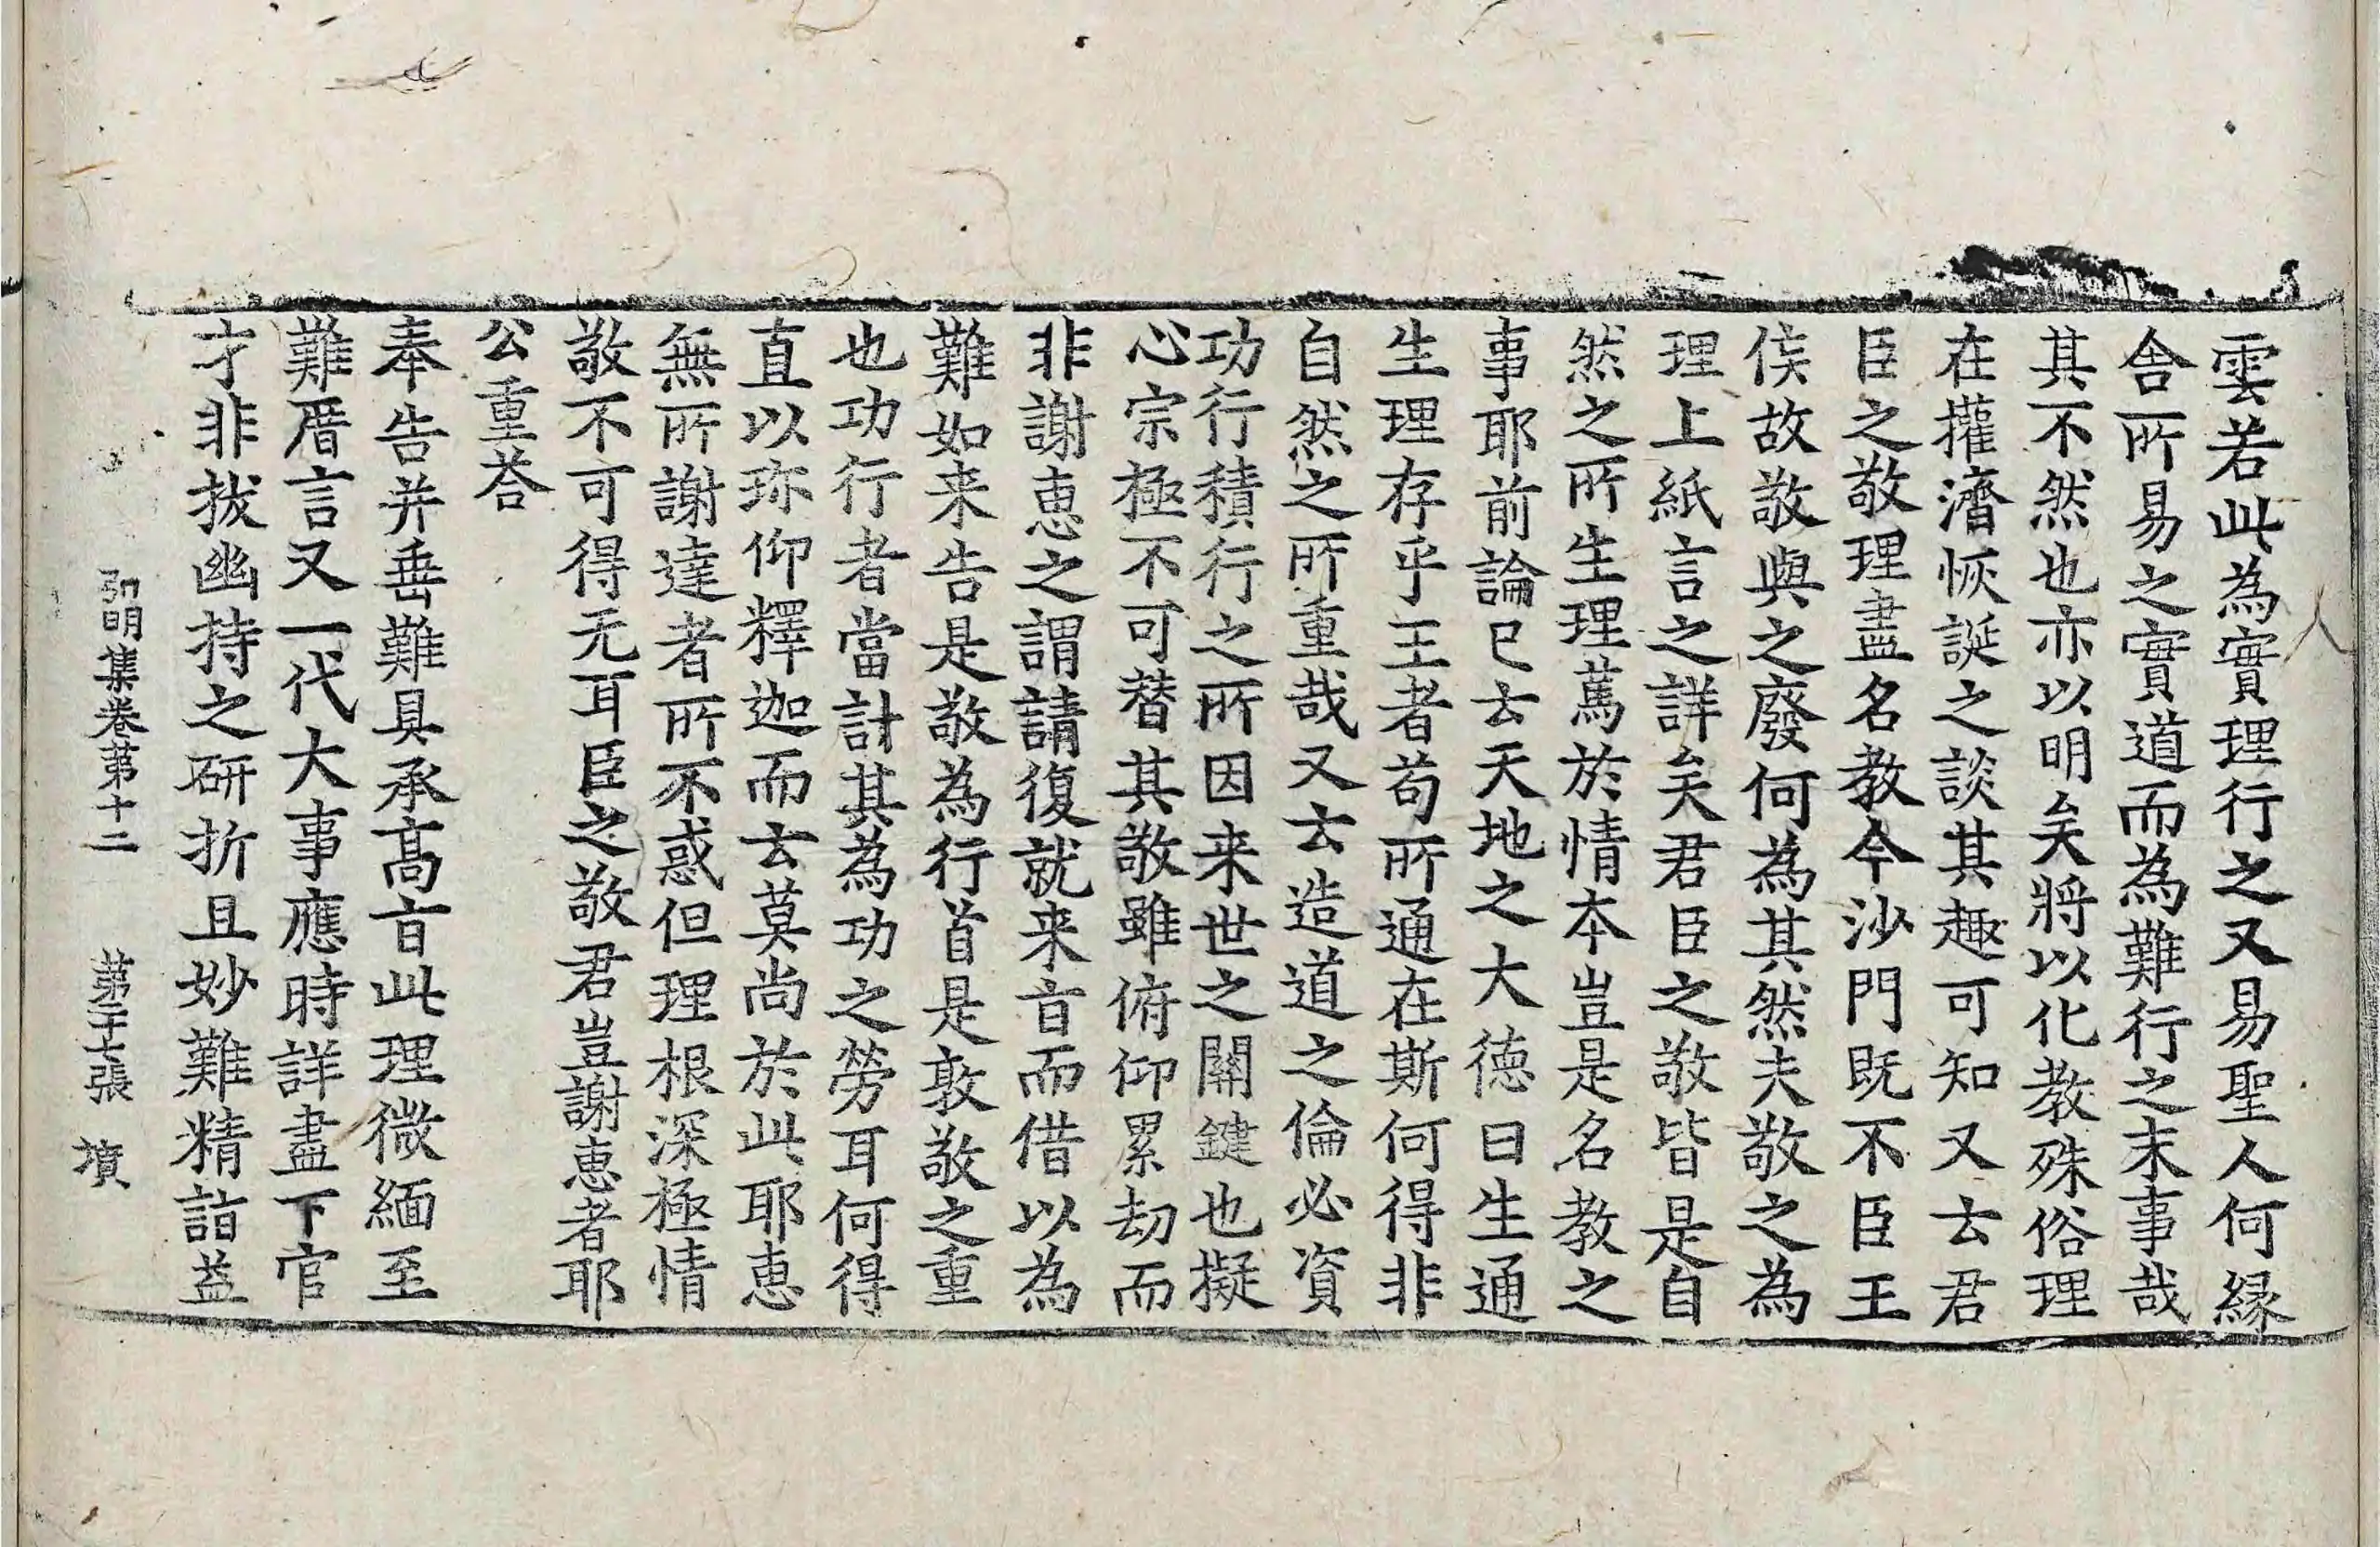 雲若此為實理行之又易聖人何縁
舎所易之實道而為難行之末事哉
其不然也亦以明矣將以化教殊俗理
在攉濟恢誕之談其趣可知又去君
臣之敬理盡名教今沙門既不臣王
侯故敬與之廢何為其然夫敬之為
理上紙言之詳矣君臣之敬皆是自
然之所生理蔫於情本豈是名教之
事耶前論已去天地之大徳曰生通
生理存乎王者苟所通在斯何得非
自然之所重哉又去造道之倫必資
功行積行之所因来世之關鍵也擬
心宗極不可替其敬雖俯仰累劫而
非謝恵之謂請復就来㫖而借以為
難如来告是敬為行首是敦敬之重
也功行者當計其為功之勞耳何得
直以珎仰釋迦而去莫尚於此耶恵
無所謝達者所不惑但理根深極情
敬不可得无耳臣之敬君豈謝恵者耶
公重荅
奉告并垂難具承髙㫖此理微緬至
難厝言又一代大事應時詳盡下官
才非拔幽持之研折且妙難精詣益
弘明集卷苐十二　苐二十七張　墳